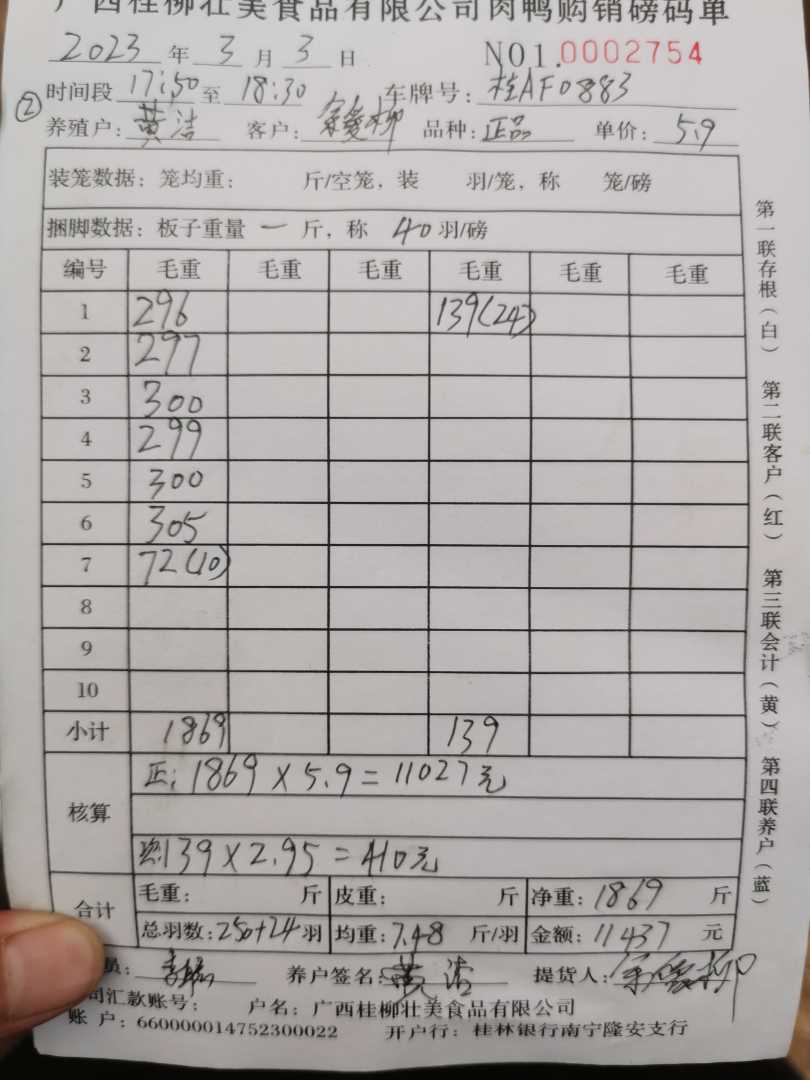 广西桂柳壮美食品有限公司肉鸭购销磅码单
2023年3月3日 NO1.0002754
② 时间段17:50至18:30 车牌号:桂AF0883
养殖户:黄洁 客户: 品种:正品 单价:5.9
装笼数据:笼均重: 斤/空笼,装 羽/笼,称 笼/磅
捆脚数据:板子重量 一 斤,称 40羽/磅
编号 毛重 毛重 毛重 毛重 毛重 毛重
1 296 139(24)
2 297
3 300
4 299
5 300
6 305
7 72(10)
8
9
10
小计 1869 139
核算 正:1869×5.9=11027元
139×2.95=410元
合计 毛重: 斤 皮重: 斤 净重:1869 斤
总羽数:250+24羽 均重:7.48 斤/羽 金额:11437 元
员: 养户签名:黄洁 提货人:
司汇款账号: 户名:广西桂柳壮美食品有限公司
账户:660000014752300022 开户行:桂林银行南宁隆安支行
第一联存根(白) 第二联客户(红) 第三联会计(黄) 第四联养户(蓝)